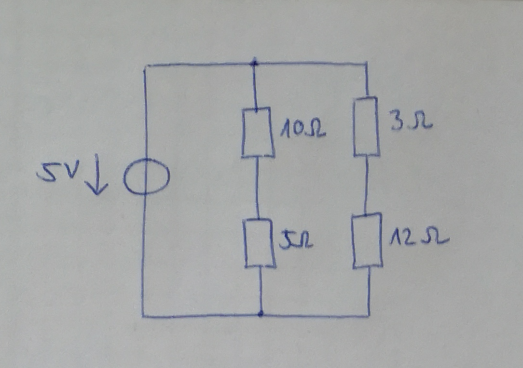 5V
10Ω
3Ω
5Ω
12Ω